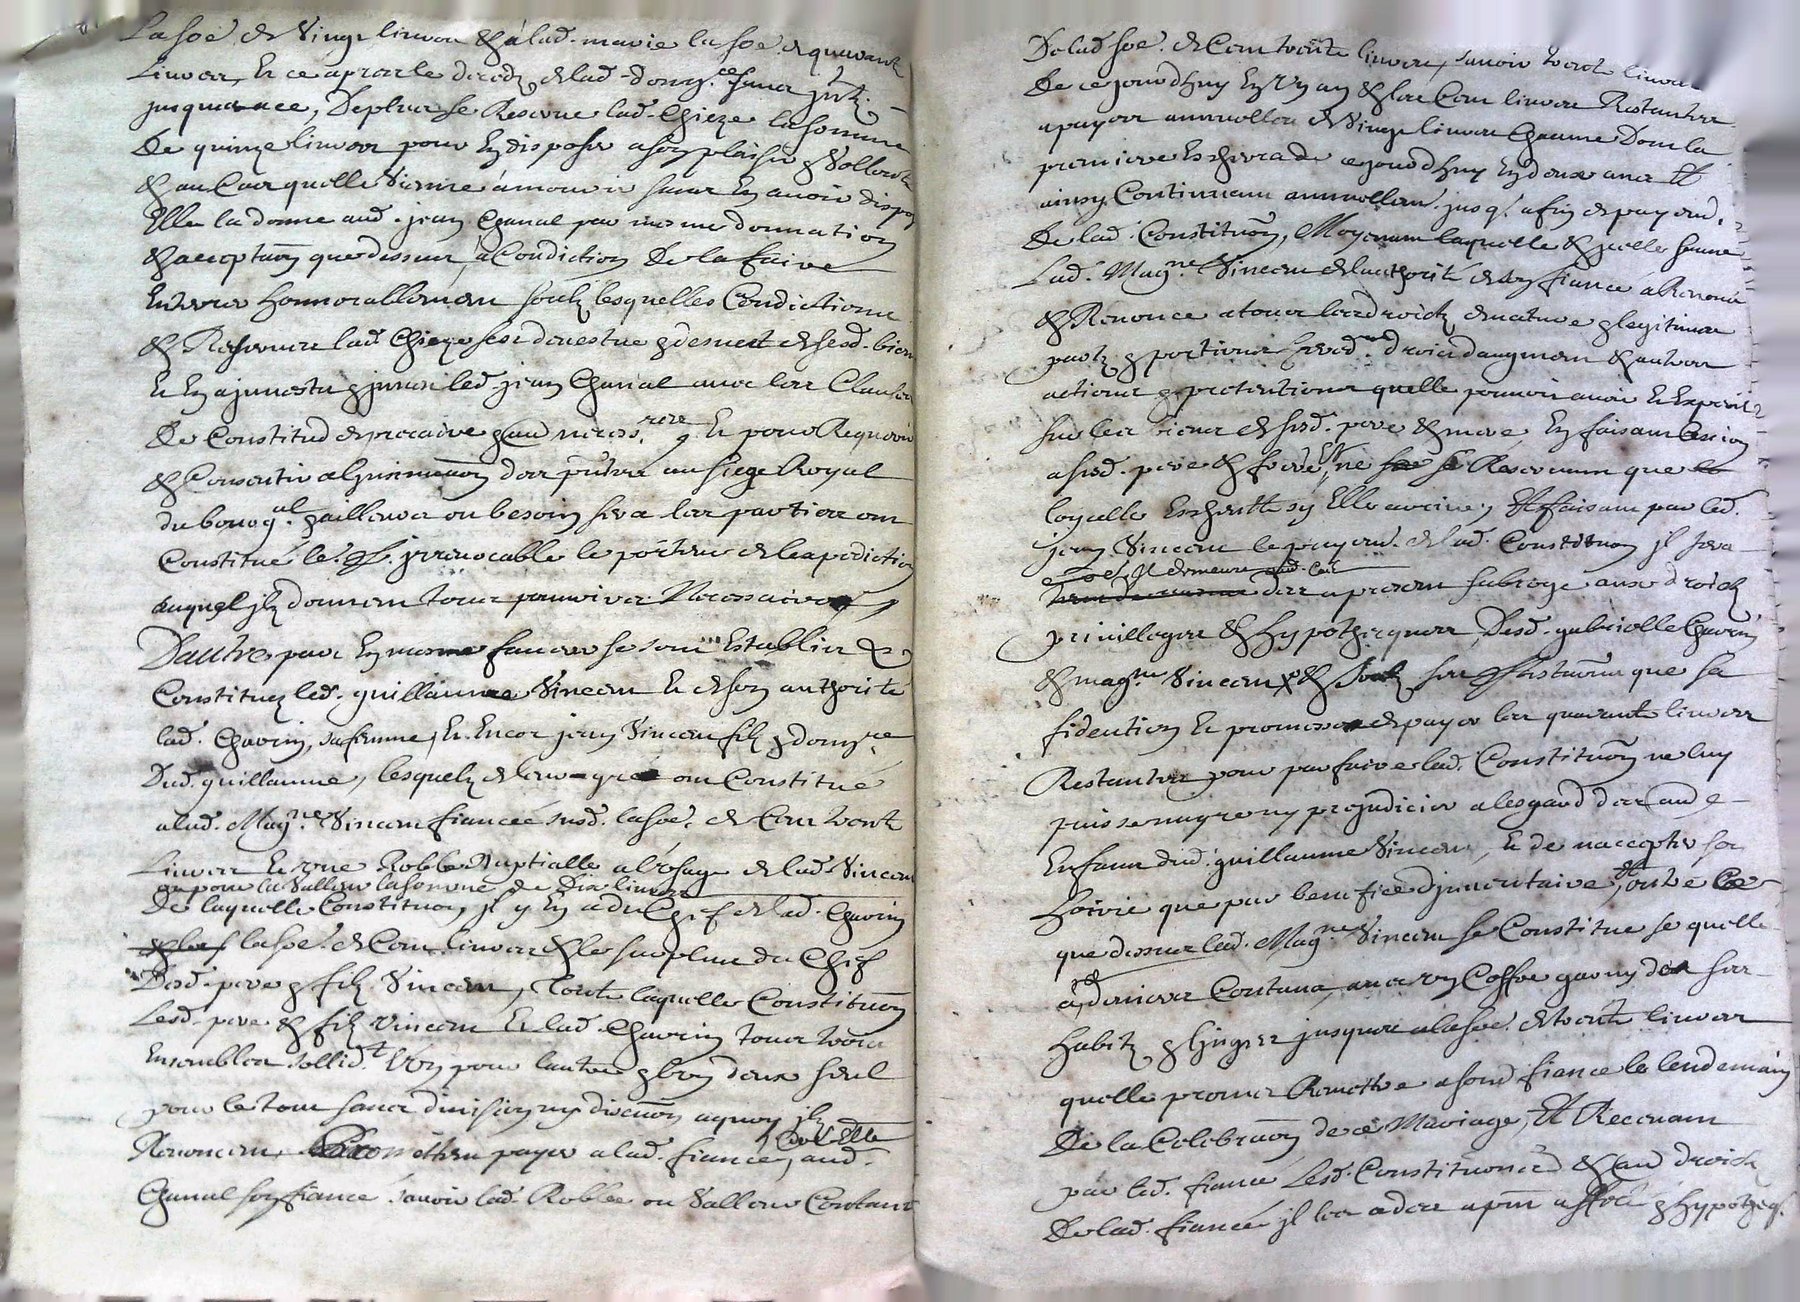 la soe. de vingt livres & a lad. marie la soe. de quarante
livres, Et ce apres le decedz de lad. donnre. sans jntz.
jusques a ce, De plus se Reserve lad. Chieze la somme
De quinze livres pour En disposer a son plaisir & vollonte
& au Cas quelle vienne a mourir sans En avoir dispoze
Elle la donne aud. jean Chanal par mesme donnation
& acceptaon que dessus, a Condiction De la faire
Enterrer honnorablement soubz lesquelles Condictions
& Reserves lad. Chieze sest devestue & desmet de sesd. biens
Et En a jnvestu & jnvesti led. jean Chanal avec les Clauses
De Constitud de precaire & au. necess.res. Et pour Requerir
& Consentir a ljnsinuaon des pntes au siege Royal
du bourg al. & ailleurs ou besoin sera les parties ont
Constitué le. jrrevocable le porteur de lexpediction
auquel jlz donnent tous pouvoirs Necessaires
Dautre part En mesme faveur se sont Establis &
Constituez led. guillaume Vincent Et de son authorité
lad. Chavrin, sa femme, Et Encor jean Vincent filz & donre.
Dud. guillaume, lesquelz de leur gré ont Constitué
a lad. Magne. Vincent fiancée susd. la soe. de Cent trente
Livres Et une Robbe Nuptialle a lusage de lad. Vincent
ou pour la valleur la somme de Dix livres
De laquelle Constituon jl y En a du Chef de lad. Chavrin
la soe. de Cent livres & le surplus du Chef
Desd. pere & filz Vincent, Toute laquelle Constituon
Lesd. pere & filz Vincent Et lad. Chavrin tous trois
Ensembles sollidt. Un pour lautre & lun deux seul
pour le tout sans division ny discuon a quoy jlz
Renoncent Promettent payer a lad. fiancée, aud.
Chanal son fiancé savoir lad. Robbe ou valleur Contant
De lad. soe. de Cent trente livres, savoir trente livres
De ce jourdhuy En Un an & les Cent livres Restantes
a payer annuellem. de vingt livres Chacune Dont la
premiere Escherra de ce jourdhuy En deux ans Et
ainsy Continuant annuellem. jusq. a fin de payemt.
De lad. Constituon, Moyenant laquelle & jcelle sauve
Lad. Magne. Vincent de lauthorité de son fiancé a Renoncé
& Renonce a tous les droictz de nature & legitime
partz & portions hered. droict daugment & autres
actions & pretentions quelle pouvoit avoir Et Exercer
sur les biens de sesd. pere & mere, En faisant Cession
a sesd. pere & frere, ne se Reservant que
loyalle Escheutte sy Elle avient, Et faisant par led.
jean Vincent le payemt. de lad. Constituon jl sera
& demeure
des a present subroge aux droictz
privilleges & hypotheques Desd. gabrielle Chavrin
& magne. Vincent & soubz que sa
fidention Et promesse de payer les quarante livres
Restantes pour parfaire lad. Constituon ne luy
puisse nuyre ny prejudicier a lesgard des aue
Enfans dud. guillaume Vincent, Et de naccepter son
Hoirie que par benefice djnventaire, Et outre Ce
que dessus lad. Magne. Vincent se Constitue se quelle
a, deniers Contans, avec un Coffre garny de ses
habitz & linges jusques a la soe. de trente livres
quelle promet Remettre a sond. fiance le lendemain
De la Celebraon de ce Mariage, Et Recevant
par led. fiance Lesd. Constituons & aud. droictz
De lad. fiancée jl les a des a pnt assuré & hypotheq.